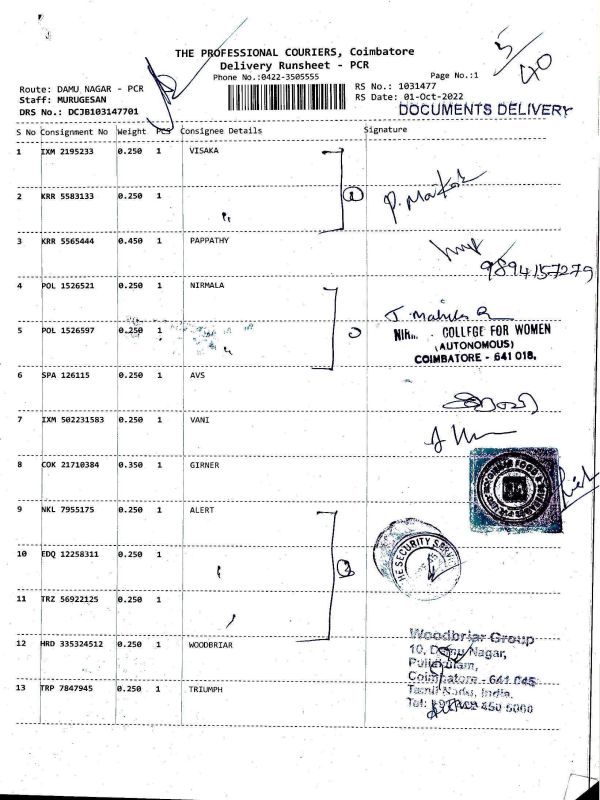 5/40
THE PROFESSIONAL COURIERS, Coimbatore
Delivery Runsheet - PCR
Phone No.:0422-3505555
Page No.:1
Route: DAMU NAGAR - PCR
RS No.: 1031477
Staff: MURUGESAN
RS Date: 01-Oct-2022
DRS No.: DCJB103147701
DOCUMENTS DELIVERY
S No Consignment No Weight PCS Consignee Details Signature
1 IXM 2195233 0.250 1 VISAKA
2 KRR 5583133 0.250 1
3 KRR 5565444 0.450 1 PAPPATHY
9894157279
4 POL 1526521 0.250 1 NIRMALA
5 POL 1526597 0.250 1
COLLEGE FOR WOMEN
(AUTONOMOUS)
COIMBATORE - 641 018.
6 SPA 126115 0.250 1 AVS
7 IXM 502231583 0.250 1 VANI
8 COK 21710384 0.350 1 GIRNER
9 NKL 7955175 0.250 1 ALERT
10 EDQ 12258311 0.250 1
SECURITY
11 TRZ 56922125 0.250 1
12 HRD 335324512 0.250 1 WOODBRIAR
Woodbriar Group
10, Damu Nagar,
Coimbatore - 641 045
Tamil Nadu, India.
13 TRP 7847945 0.250 1 TRIUMPH